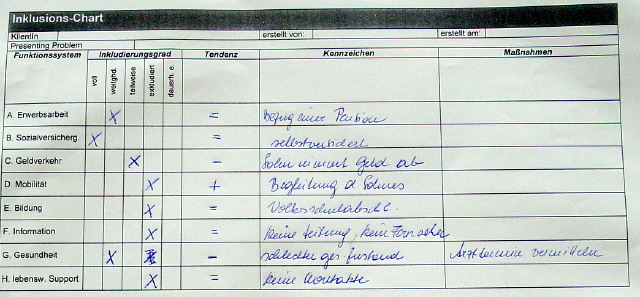 Inklusions-Chart
KlientIn erstellt von: erstellt am:
Presenting Problem
Funktionssystem Inkludierungsgrad Tendenz Kennzeichen Maßnahmen
voll weitghd. teilweise exkludiert dauerh. e.
A. Erwerbsarbeit X = Bezug einer Pension
B. Sozialversicherg. X = selbstversichert
C. Geldverkehr X – Sohn nimmt Geld ab
D. Mobilität X + Begleitung d. Sohnes
E. Bildung X = Volksschulabschl.
F. Information X = keine Zeitung, kein Fernseher
G. Gesundheit X – schlechter ges. zustand Arzttermine vermitteln
H. lebensw. Support X = keine Kontakte